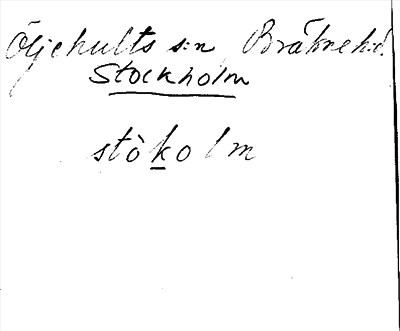 Öljehults s:n, Bräkneh:d.
Stockholm
stòkolm